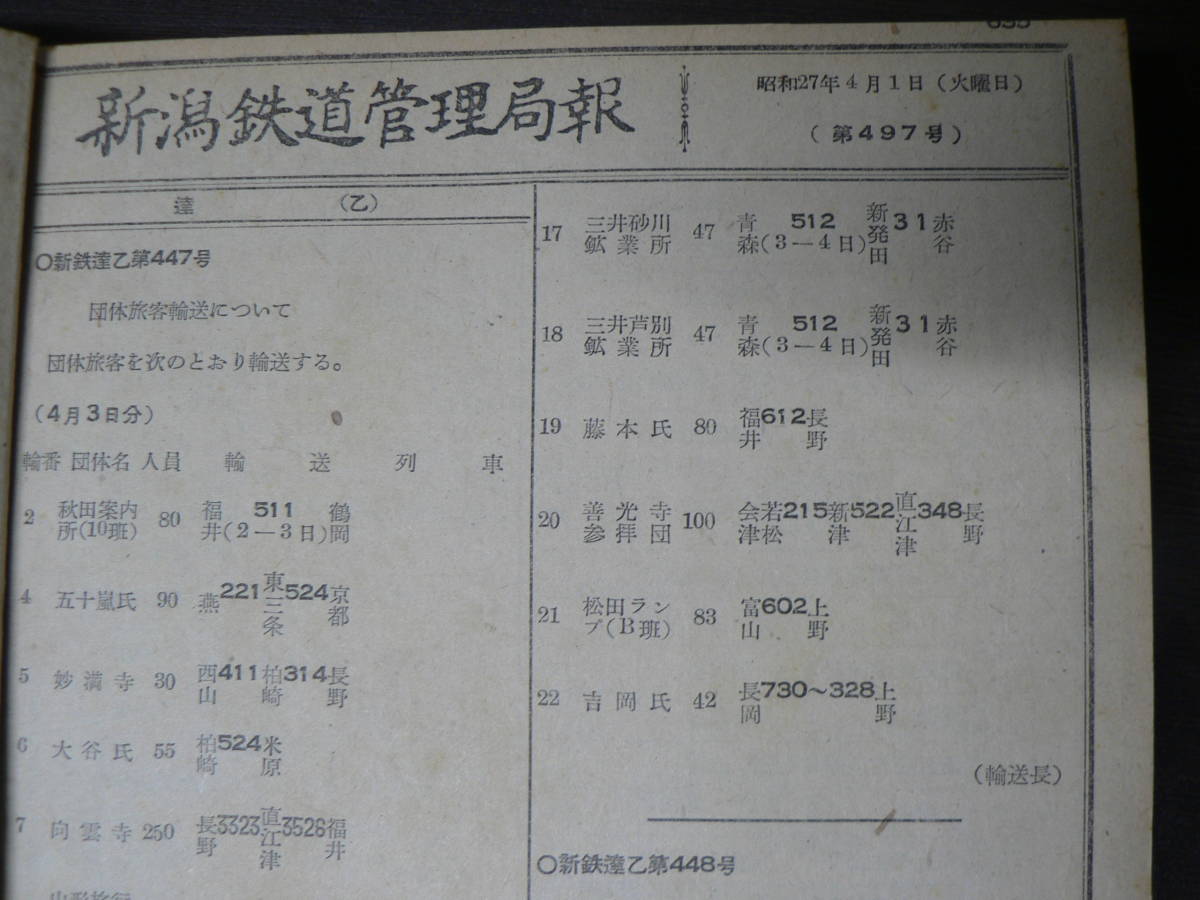 新潟鉄道管理局報
昭和27年4月1日(火曜日)
(第497号)
達 (乙)
○新鉄達乙第447号
団体旅客輸送について
団体旅客を次のとおり輸送する。
(4月3日分)
輸番 団体名 人員 輸送列車
2 秋田案内所(10班) 80 福井 511 (2―3日) 鶴岡
4 五十嵐氏 90 燕 221 東三条 524 京都
5 妙満寺 30 西山 411 柏崎 314 長野
6 大谷氏 55 柏崎 524 米原
7 向雲寺 250 長野 3323 直江津 3526 福井
17 三井砂川鉱業所 47 青森 512 (3―4日) 新発田 31 赤谷
18 三井芦別鉱業所 47 青森 512 (3―4日) 新発田 31 赤谷
19 藤本氏 80 福井 612 長野
20 善光寺参拝団 100 会津若松 215 新津 522 直江津 348 長野
21 松田ランプ(B班) 83 富山 602 上野
22 吉岡氏 42 長岡 730～328 上野
(輸送長)
○新鉄達乙第448号